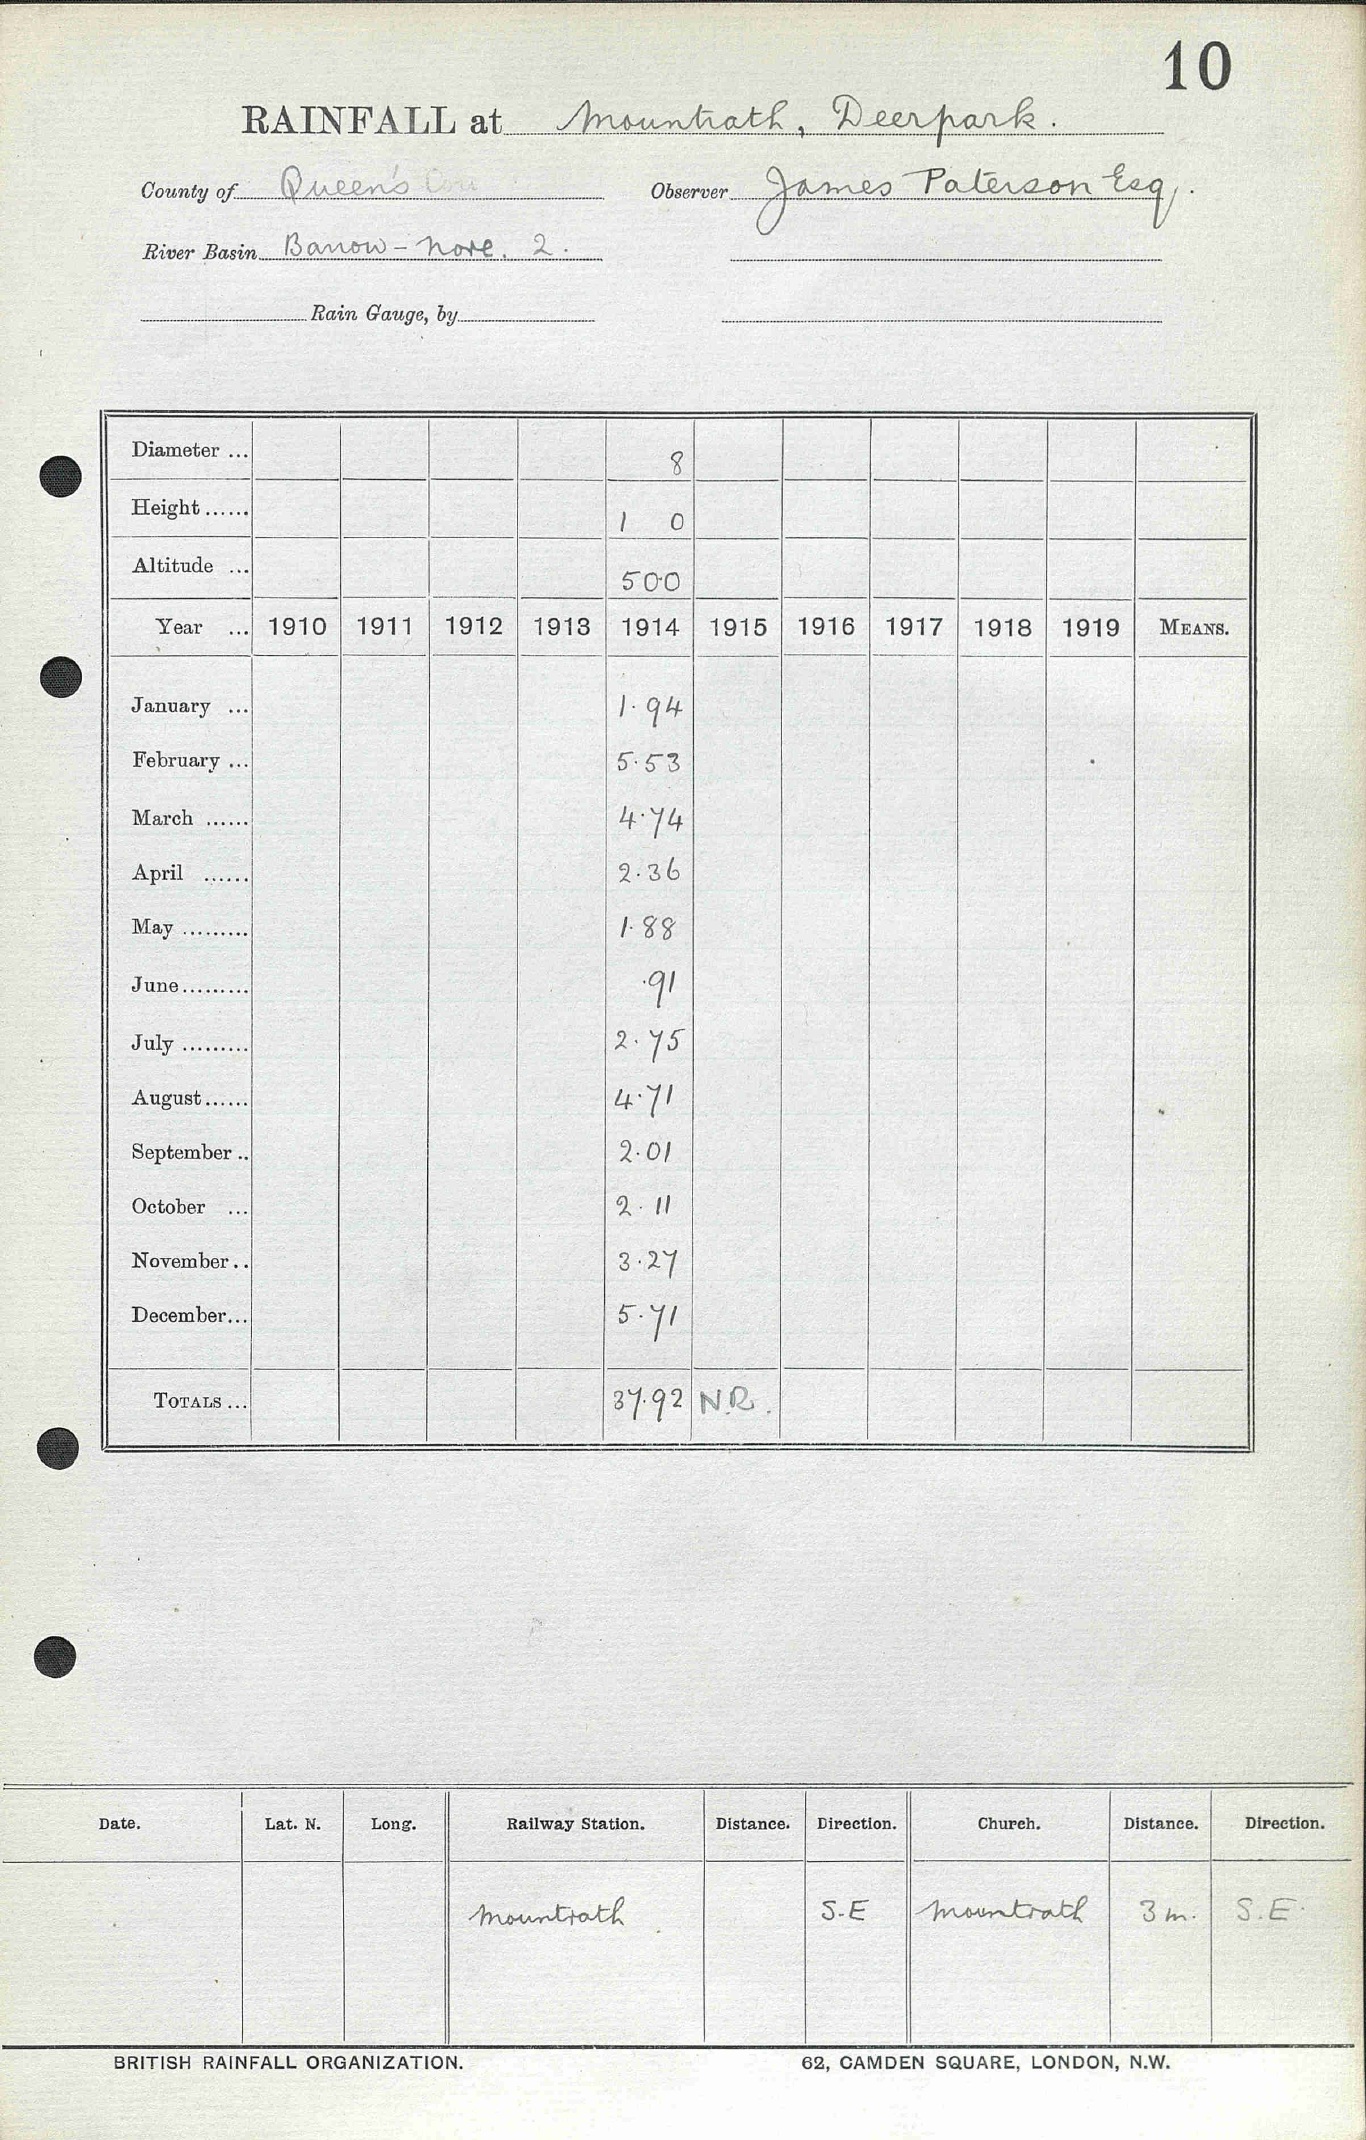 10
RAINFALL at Mountrath, Deerpark.
County of Queen's Cou Observer James Paterson Esq.
River Basin Barrow - Nore. 2.
Rain Gauge, by
Diameter ... 8
Height ...... 1 0
Altitude ... 500
Year ... 1910 1911 1912 1913 1914 1915 1916 1917 1918 1919 MEANS.
January ... 1.94
February ... 5.53
March ...... 4.74
April ...... 2.36
May ......... 1.88
June ......... .91
July ......... 2.75
August ...... 4.71
September .. 2.01
October ... 2.11
November .. 3.27
December ... 5.71
TOTALS ... 37.92 N.R.
Date. Lat. N. Long. Railway Station. Distance. Direction. Church. Distance. Direction.
Mountrath S.E Mountrath 3 m. S.E.
BRITISH RAINFALL ORGANIZATION. 62, CAMDEN SQUARE, LONDON, N.W.